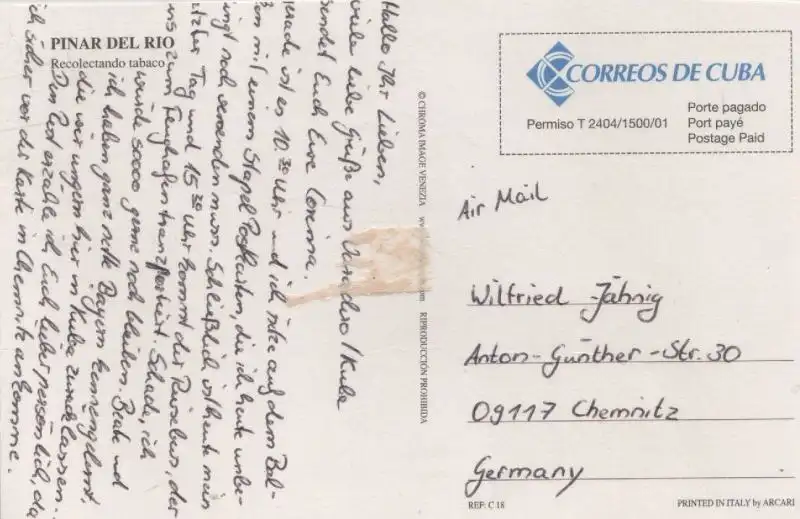 PINAR DEL RIO
Recolectando tabaco
Hallo Ihr Lieben,
viele liebe Grüße aus Varadero/Kuba
sendet Euch Eure Corinna.
erade ist es 10.30 Uhr und ich sitze auf dem Bal-
on mit einem Stapel Postkarten, die ich heute unbe-
ingt noch versenden muss. Schließlich ist heute mein
tzter Tag und 15.30 Uhr kommt der Reisebus, der
uns zum Flughafen transportiert. Schade, ich
würde soooo gerne noch bleiben. Beate und
ich haben ganz nette Bayern kennengelernt,
die wir ungern hier in Kuba zurücklassen.
Den Rest erzähle ich Euch lieber persönlich, da
ich sicher vor der Karte in Chemnitz ankomme.
© CHROMA IMAGE VENEZIA
RIPRODUCCIÓN PROHIBIDA
CORREOS DE CUBA
Permiso T 2404/1500/01
Porte pagado
Port payé
Postage Paid
Air Mail
Wilfried Jähnig
Anton-Günther-Str. 30
09117 Chemnitz
Germany
REF: C 18
PRINTED IN ITALY by ARCARI